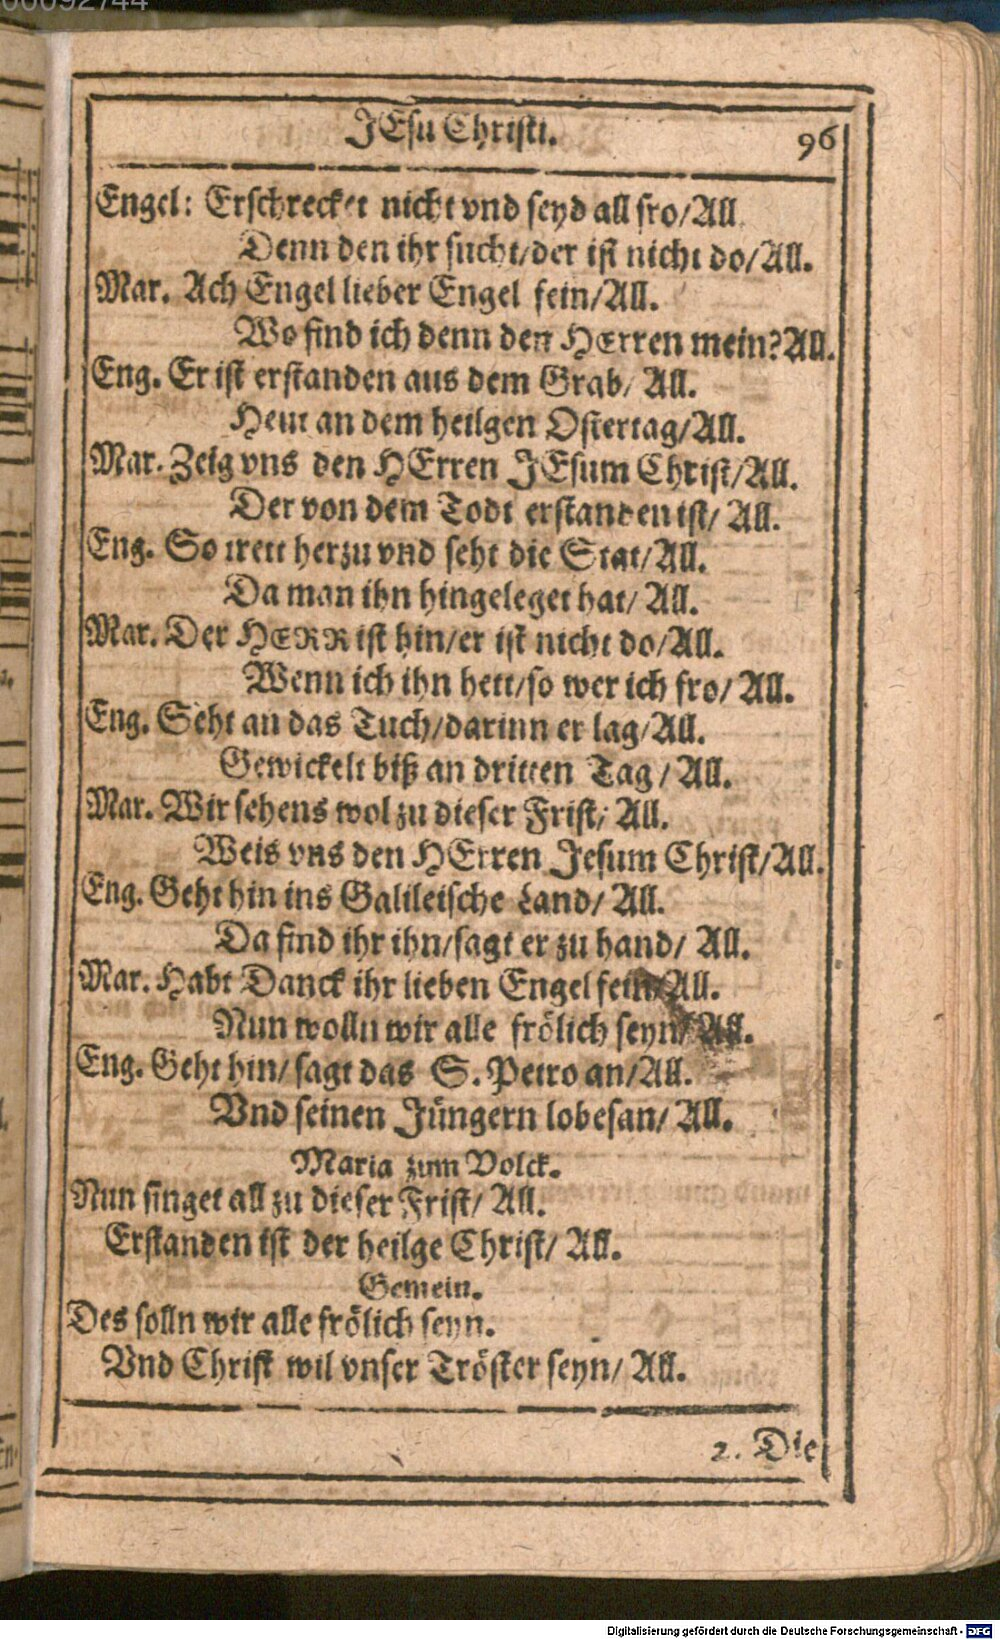 00092744
JEsu Christi.
96
Engel: Erschrecket nicht vnd seyd all fro/All
Denn den ihr sucht/der ist nicht do/All.
Mar. Ach Engel lieber Engel fein/All.
Wo find ich denn den HErren mein?All.
Eng. Er ist erstanden aus dem Grab/ All.
Heut an dem heilgen Ostertag/All.
Mar. Zeig vns den HErren JEsum Christ/All.
Der von dem Todt erstanden ist/ All.
Eng. So trett herzu vnd seht die Stat/All.
Da man ihn hingeleget hat/ All.
Mar. Der HERR ist hin/er ist nicht do/All.
Wenn ich ihn hett/so wer ich fro/ All.
Eng. Seht an das Tuch/darinn er lag/All.
Gewickelt biß an dritten Tag/ All.
Mar. Wir sehens wol zu dieser Frist/ All.
Weis vns den HErren Jesum Christ/All.
Eng. Geht hin ins Galileische Land/ All.
Da find ihr ihn/sagt er zu hand/ All.
Mar. Habt Danck ihr lieben Engel fein/All.
Nun wolln wir alle frölich seyn/ All.
Eng. Geht hin/ sagt das S. Petro an/All.
Vnd seinen Jüngern lobesan/ All.
Maria zum Volck.
Nun singet all zu dieser Frist/ All.
Erstanden ist der heilge Christ/ All.
Gemein.
Des solln wir alle frölich seyn.
Vnd Christ wil vnser Tröster seyn/ All.
2. Die
Digitalisierung gefördert durch die Deutsche Forschungsgemeinschaft - DFG